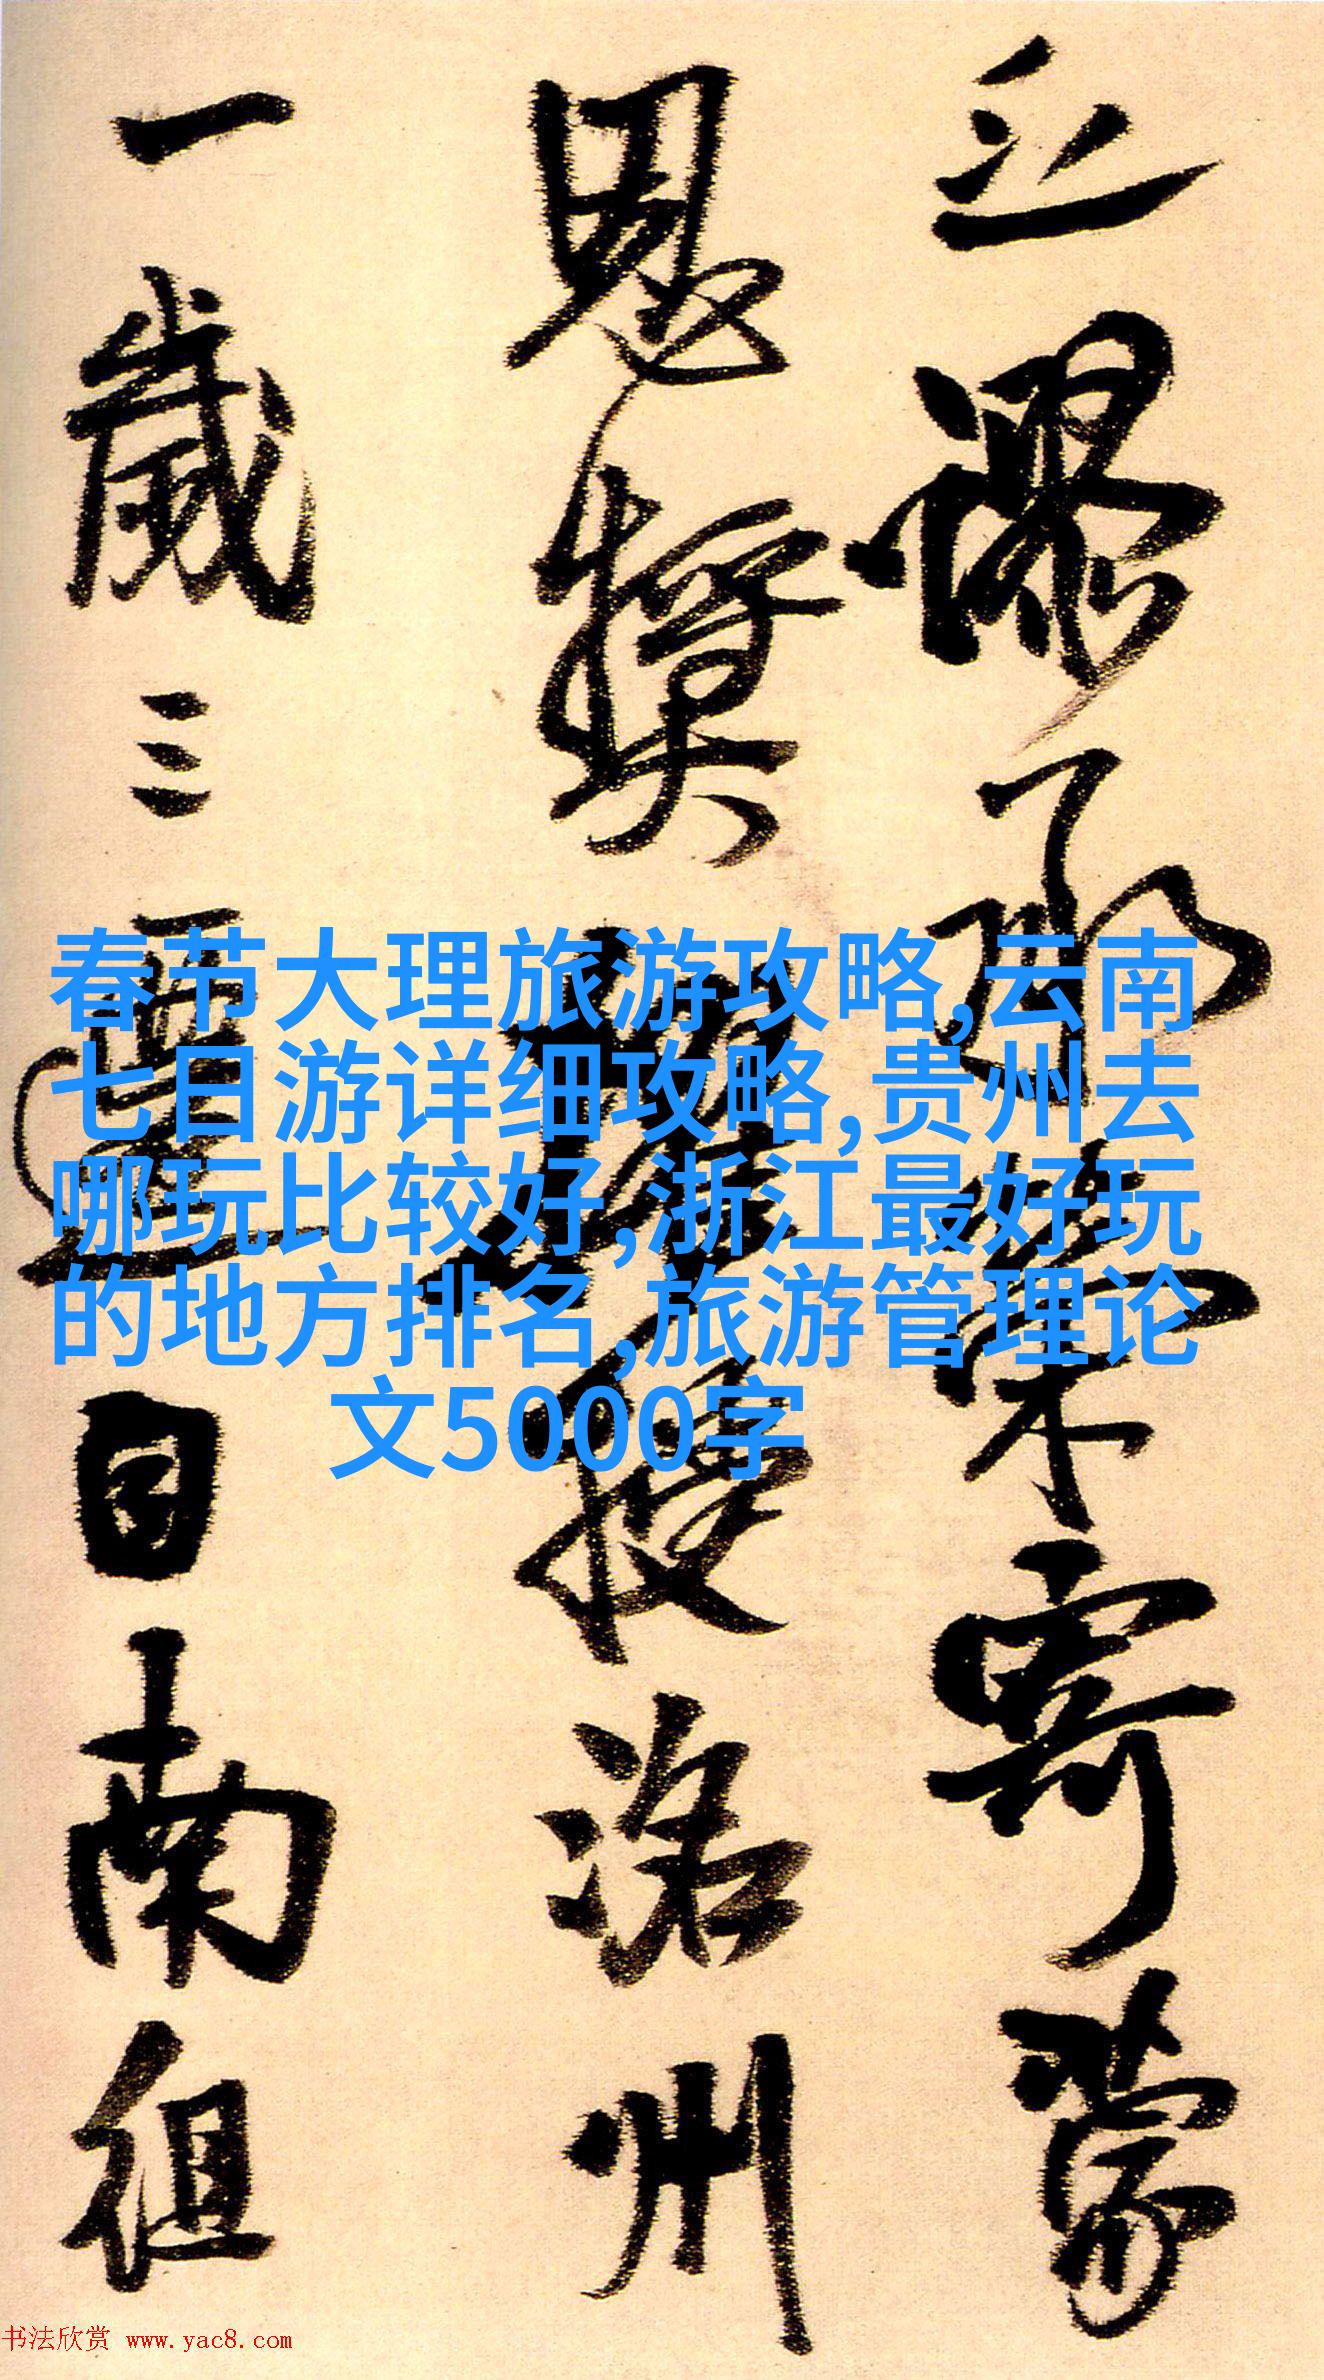 立谬承荣寄蒙
恩奖擢授洺州
一歳三遷自南徂
春节大理旅游攻略,云南
七日游详细攻略,贵州去
哪玩比较好,浙江最好玩
的地方排名,旅游管理论
文5000字
书法欣赏 www.yac8.com